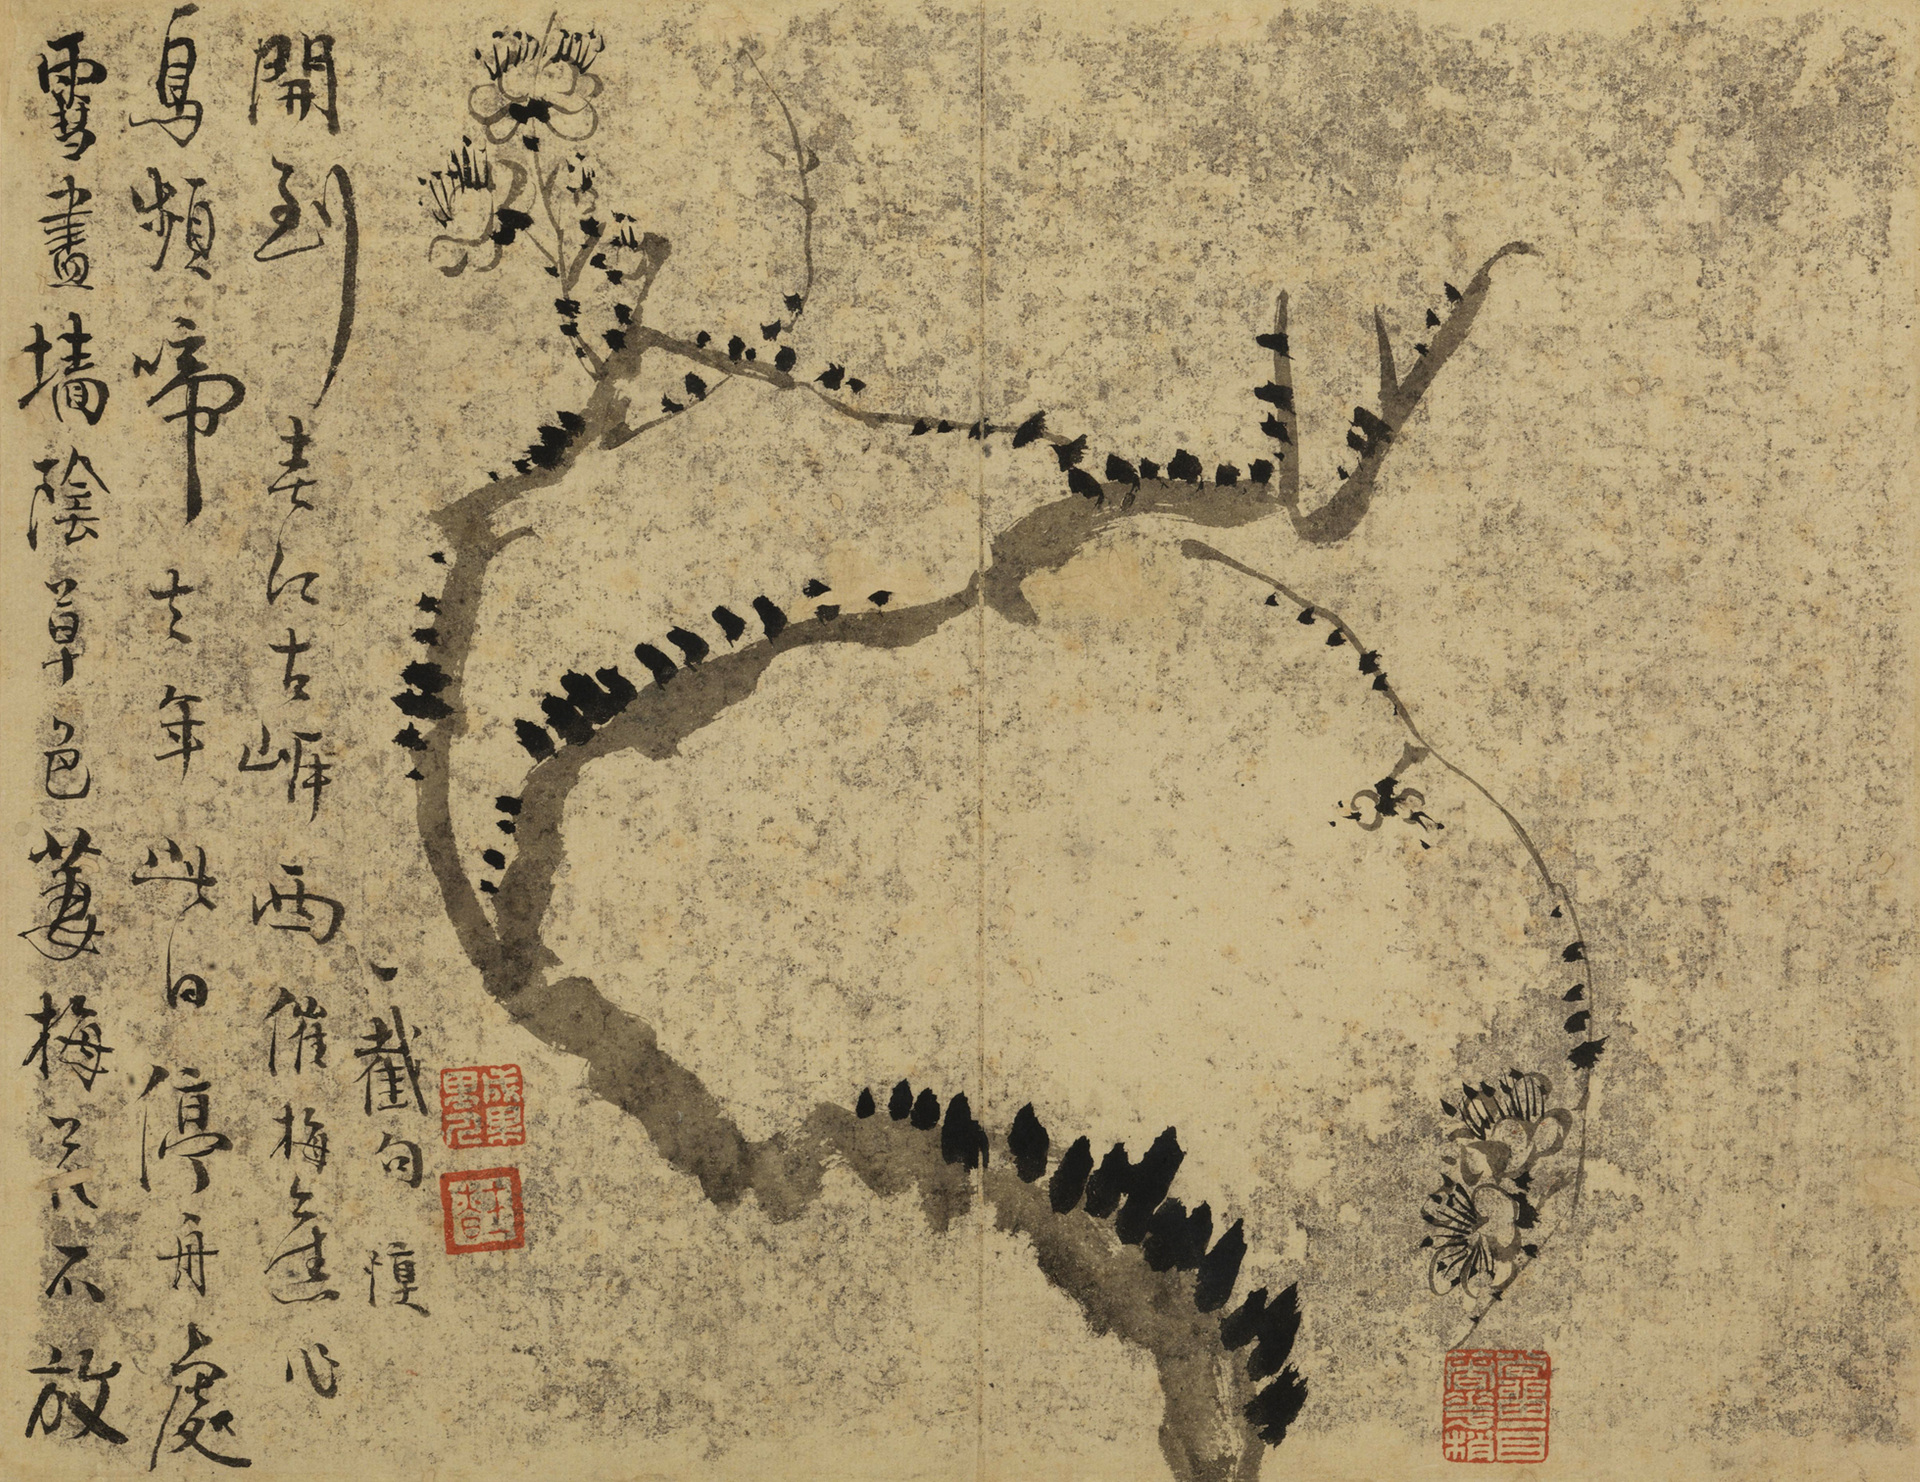 雪盡墻陰草色萋梅花不放
鳥頻啼去年此日停舟處
開到春江古岸西催梅作
一截句